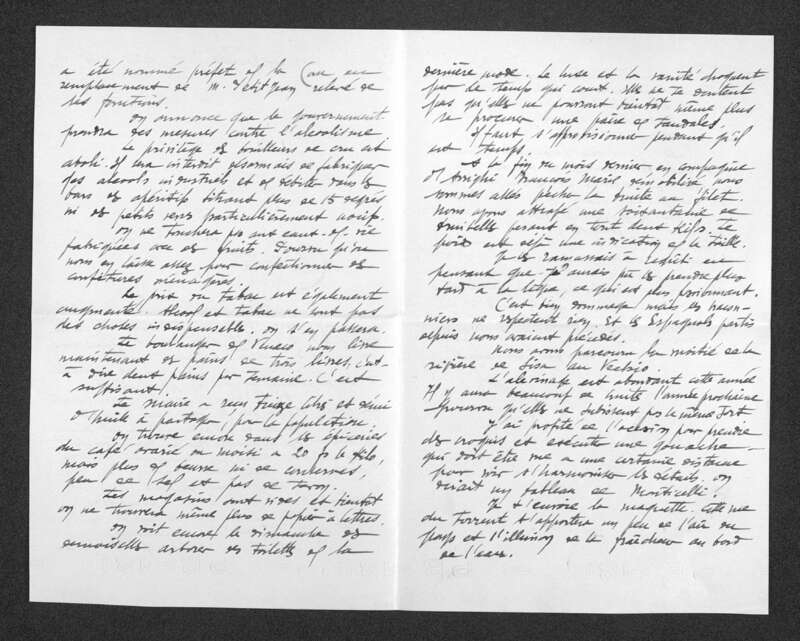 a été nommé préfet de la Cou en
remplacement de M. Petitjean relevé de
ses fonctions.
On annonce que le gouvernement
prendra des mesures contre l'alcoolisme.
Le privilège des bouilleurs de cru est
aboli. Il sera interdit désormais de fabriquer
des alcools industriels et de débiter dans les
bars des apéritifs titrant plus de 15 degrés
ni de petits vers particulièrement nocifs.
On ne touchera pas aux eaux-de-vie
fabriquées avec des fruits. Pourvu qu'on
nous en laisse assez pour confectionner des
confitures ménagères.
Le prix du tabac est également
augmenté. Alcool et tabac ne sont pas
des choses indispensables. On s'en passera.
Le boulanger de nous livre
maintenant des pains de trois livres, c'est-
à dire deux pains par semaine. C'est
suffisant.
Le maire a reçu treize litres et demi
d'huile à partager, pour la population.
On trouve encore dans les épiceries
du café avarié ou moisi à 20 fs le kilo,
mais plus de beurre ni de conserves,
peu de sel et pas de savon.
Les magasins sont vides et bientôt
on ne trouvera même plus de papier à lettres.
On voit encore le dimanche des
demoiselles arborer des toilettes de la
dernière mode. Le luxe et la vanité choquent
par le temps qui court. Elles ne se doutent
pas qu'elles ne pourront bientôt même plus
se procurer une paire de sandales.
Il faut s'approvisionner pendant qu'il
est temps.
A la fin du mois dernier en compagnie
d'Arrighi François Marie, démobilisé nous
sommes allés pêcher la truite au filet.
Nous avons attrapé une soixantaine de
truitelles pesant en tout deux kilos. Le
poids est déjà une indication de la taille.
Je les ramassais à regret en
pensant que j'aurais pu les prendre plus
tard à la ligne, ce qui est plus passionnant.
C'est bien dommage mais les
ne respectent rien. Et les Espagnols partis
depuis nous avaient précédés.
Nous avons parcouru la moitié de la
rivière de Sisa au Vecchio.
L'alevinage est abondant cette année
Il y aura beaucoup de truites l'année prochaine
pourvu qu'elles ne subissent pas le même sort
J'ai profité de l'occasion pour prendre
des croquis et exécuté une gouache
qui doit être vue à une certaine distance
pour voir s'harmoniser les détails, on
dirait un tableau de Monticelli.
Je t'envoie la maquette. Cette vue
du torrent t'apportera un peu de l'air du
pays et l'illusion de la fraîcheur au bord
de l'eau.